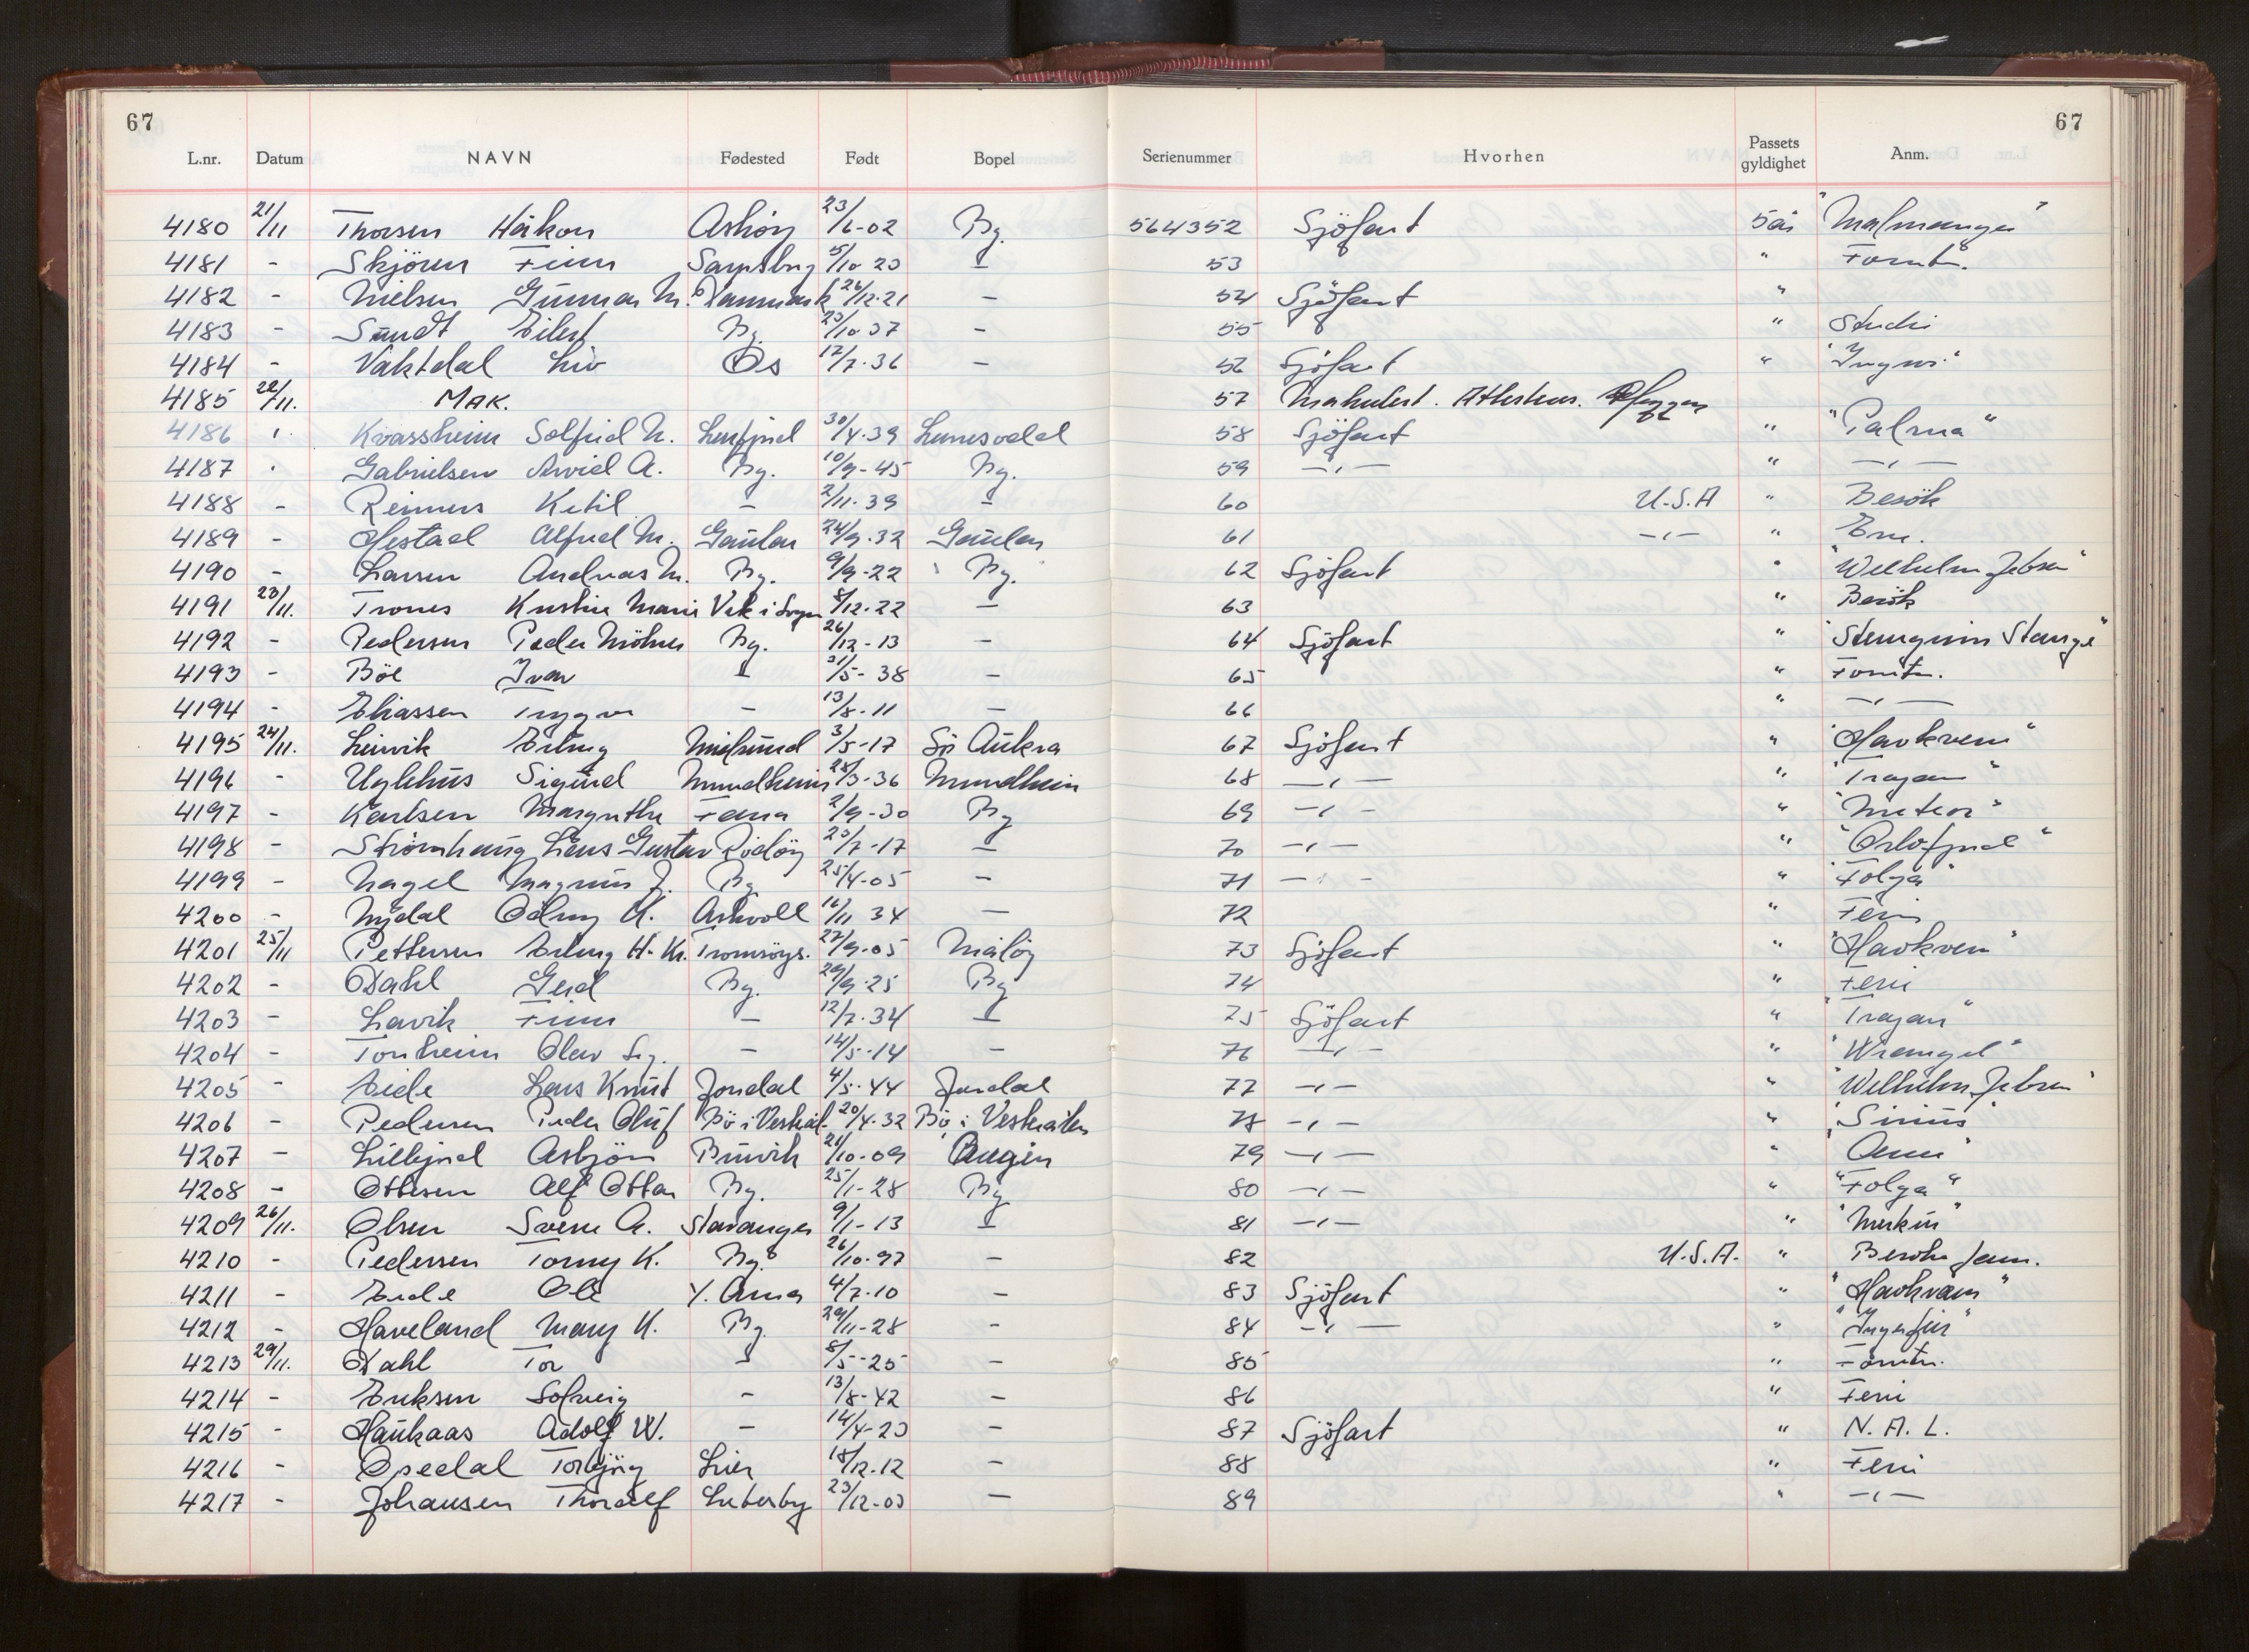 67 67
L.nr. Datum NAVN Fødested Født Bopel Serienummer Hvorhen Passets gyldighet Anm.
4180 21/11 Thorsen Håkon Askøy 23/6-02 Bg. 564352 Sjöfart 5 år "Malmanger"
4181 - Skjören Finn Sarpsbrg 5/10 23 - 53 " Forrtn.
4182 - Nielsen Gunnar M. Danmark 26/12-21 - 54 Sjöfart "
4183 - Sundt Eilert Bg. 23/10 37 - 55 " Studie
4184 - Vaktdal Liv Os 12/7-36 - 56 Sjöfart "
4185 22/11. MAK. 57
4186 Kvassheim Solfrid M. 30/4-39 58 Sjöfart " "Palma"
4187 Gabrielsen Arvid A. Bg. 10/9-45 Bg. 59 -"- " -"-
4188 - Reimers Ketil - 2/11-39 - 60 U.S.A " Besök
4189 - Hestad Alfred M. Gaular 24/9-32 Gaular 61 -"- "
4190 - Larsen Andreas M. Bg. 9/9-22 Bg. 62 Sjöfart " "Wilhelm Jebsen"
4191 23/11. Trones Kirstine Marie Vik i Sogn 8/12-22 - 63 " Besök
4192 - Pedersen Peder Möhner Bg. 26/12-13 - 64 Sjöfart " Stange"
4193 - Böe Ivar - 31/5-38 - 65 " Forrtn.
4194 - Eliassen Trygve - 13/8-11 - 66 " -"-
4195 24/11. Leirvik Erling Midsund 3/5-17 Sö Aukra 67 Sjöfart " "Havkvern"
4196 - Uglehus Sigurd Mundheim 28/3-36 Mundheim 68 -"- " "Trajan"
4197 - Karlsen Margrethe Fana 2/9-30 Bg 69 -"- " "Meteor"
4198 - Strömhaug Lars Gustav Rödöy 23/7-17 - 70 -"- " "Oslofjord"
4199 - Nagel Magnus J. Bg 25/4-05 - 71 -"- " "Folga"
4200 - Nydal Odny K. Askvoll 16/11 34 - 72 " Ferie
4201 25/11 Pettersen Erling H. Kr. Tromsöys. 27/9-05 Måløy 73 Sjöfart " "Havkvern"
4202 - Dahl Gerd Bg. 29/9-25 Bg 74 " Ferie
4203 - Lavik Finn - 12/7-34 - 75 Sjöfart " "Trajan"
4204 - Tonheim Olav Sig. - 14/5-14 - 76 -"- " "Wrangel"
4205 - Eide Lars Knut Jondal 4/5-44 Jondal 77 -"- " "Wilhelm Jebsen"
4206 - Pedersen Peder Oluf Bö i Vesterål. 20/4-32 Bö i Vesterålen 78 -"- " "Sirius"
4207 - Lillefjord Asbjörn Buvik 21/10-09 79 -"- "
4208 - Ottesen Alf Ottar Bg. 25/1-28 Bg 80 -"- " "Folga"
4209 26/11. Olsen Sverre A. Stavanger 9/1-13 - 81 -"- " "Merkur"
4210 - Pedersen Tonny K. Bg. 26/10-97 - 82 U.S.A. " Besöke fam.
4211 - Eide Ole Y. Arna 4/7-10 - 83 Sjöfart " "Havkvern"
4212 - Haveland Mary K. Bg. 29/11-28 - 84 -"- " "Ingerfire"
4213 29/11. Dahl Tor - 8/5-25 - 85 " Forrtn.
4214 - Eriksen Solveig - 13/8-42 - 86 " Ferie
4215 - Haukaas Adolf W. - 14/4-23 - 87 Sjöfart " N.A.L.
4216 - Opedal Torbjörg Lier 18/12-12 - 88 " Ferie
4217 - Johansen Thoralf 23/12-03 - 89 " -"-